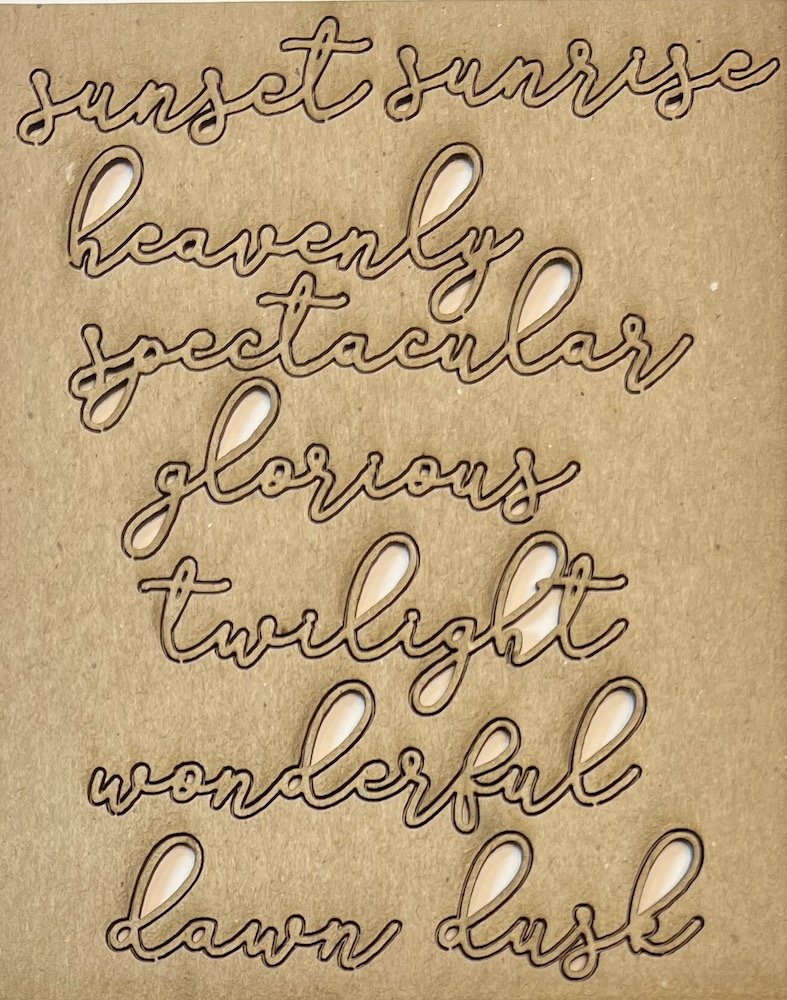 sunset sunrise
heavenly
spectacular
glorious
twilight
wonderful
dawn dusk